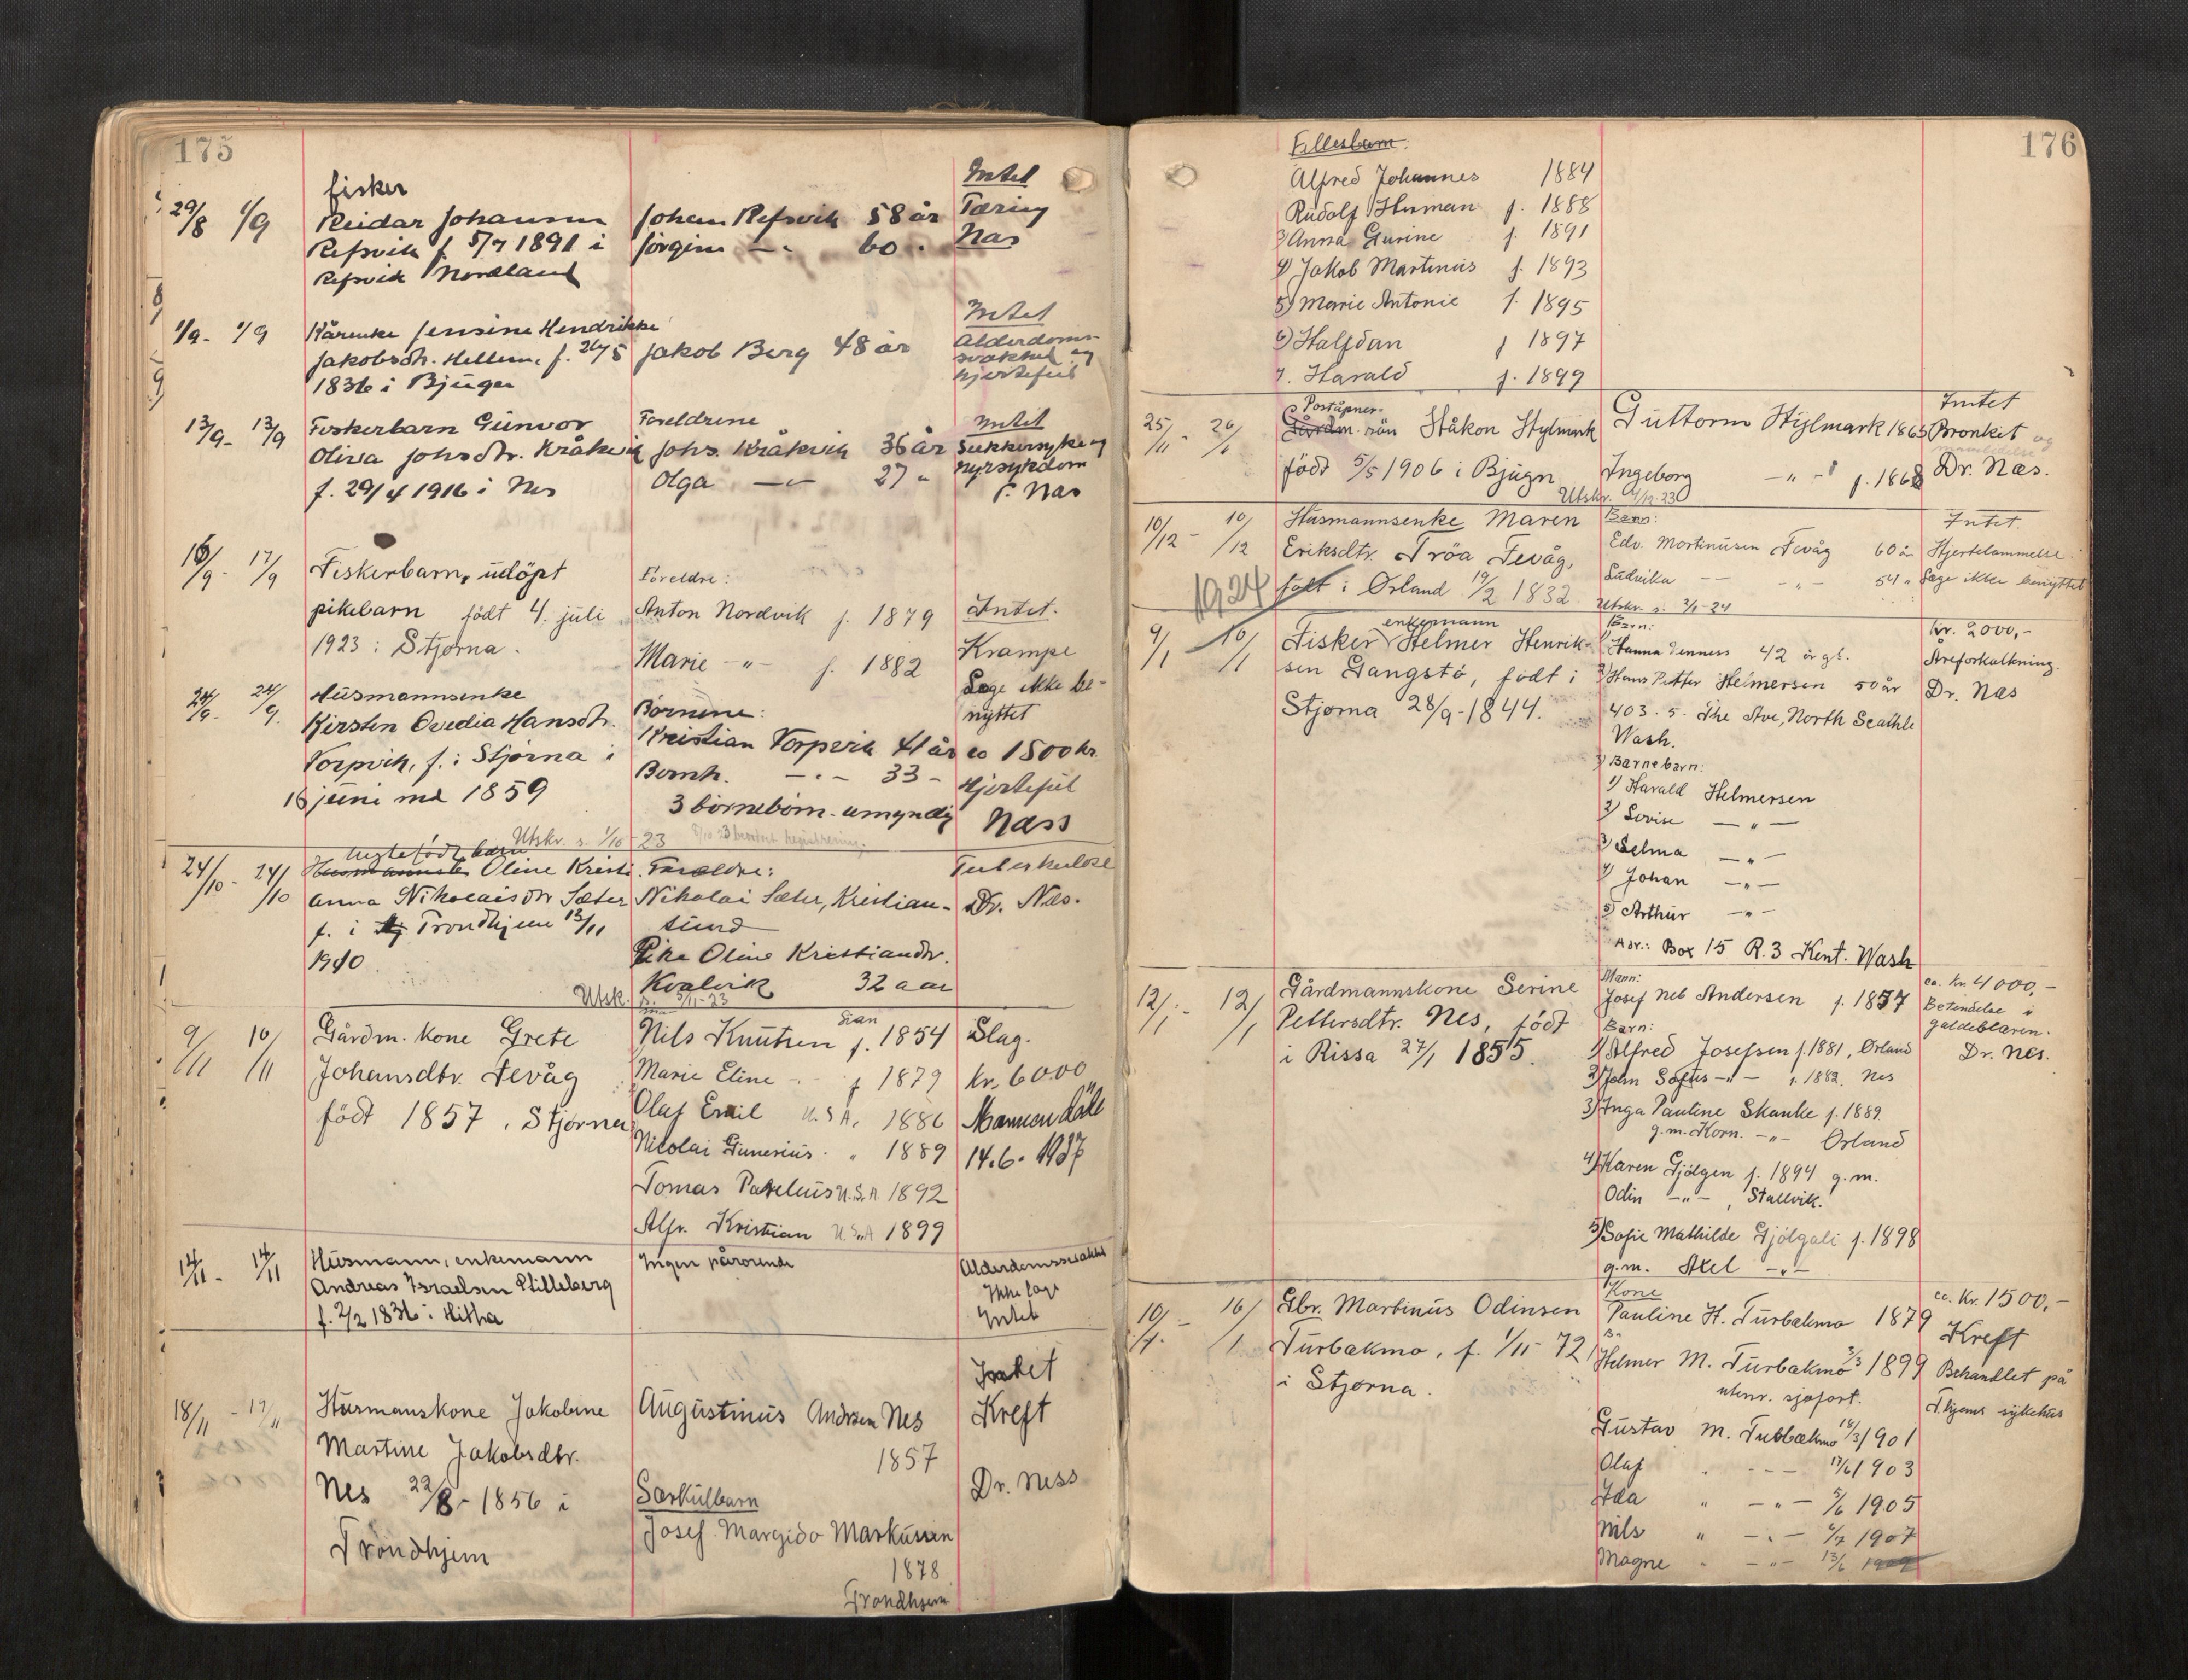 175
fisker
29/8 1/9 Reidar Johansen Johan Refsvik 58 år Intet
Refsvik f. 5/7 1891 i Jörgine —"— 60 " Tæring
Refsvik Nordland Næs
1/9 - 1/9 Kårenke Jensine Hendrikke Intet
Jakobsdtr. Hellem, f. 26/5 Jakob Berg 48 år Alderdoms-
1836 i Bjugn svakhet og
hjertefeil
13/9 - 13/9 Fiskerbarn Gunvor Foreldrene Intet
Oliva Johsdtr. Kråkvik Johs. Kråkvik 36 år Sukkersyke og
f. 29/4 1916 i Nes Olga —"— 27 " nyrsykdom
Næs
16/9 - 17/9 Fiskerbarn, udöpt Foreldre:
pikebarn född 4. juli Anton Nordvik f. 1879 Intet.
1923 i Stjørna. Marie —"— f. 1882 Krampe
Læge ikke be-
nyttet
24/9. 24/9. Husmannsenke Börnene:
Kirsten Ovedia Hansdtr. Kristian Vorpvik 41 år ca 1500 kr.
Vorpvik, f. i Stjørna i Bernh. —"— 33 - Hjertefeil
16 juni md 1859 3 börnebörn umyndig Næss
Utskr. s. 1/10 23
24/10 - 24/10 Uegtefödt barn Oline Kristi- Foreldre: Tuberkulose
anna Nikolaisdtr Sæter Nikolai Sæter, Kristian- Dr. Næs.
f. i Trondhjem 13/11 sund
1910 Pike Oline Kristiandtr.
Kvalvik 32 aar
Utsk. s. 5/11-23
9/11 10/11 Gårdm. kone Grete Nils Knutsen f. 1854 Slag.
Johansdtr. Fevåg Marie Eline - f 1879 kr. 6000
född 1857, Stjørna Olaf Emil U.S.A. 1886 Mannen död
Nikolai Gunerius " 1889 14.6. 1937
Tomas Paselius U.S.A. 1892
Alfr. Kristian U.S.A 1899
14/11 - 14/11 Husmann, enkemann Ingen pårörende Alderdomssvakhet
Andreas Israelsen Lilleberg Ikke læge
f. 2/2 1836 i Hitra Intet
18/11 - 19/11 Husmanskone Jakobine Augustinus Andrsen Nes Intet
Martine Jakobsdtr. 1857 Kreft
Nes 22/8 - 1856 i Særkulbarn Dr. Næss
Trondhjem Josef Margido Markussen
1878
Trondhjem
176
Fellesbarn.
Alfred Johannes 1884
Rudolf Herman f. 1888
3) Anna Gurine f. 1891
4) Jakob Martinus f. 1893
5) Marie Antonie f. 1895
6) Halfdan f 1897
7. Harald f. 1899
25/11 - 26/11 Poståpner- Intet
Gårdm. sön Håkon Hylmark Guttorm Hylmark 1865 Bronkit og
född 5/5 1906 i Bjugn Ingeborg —"— f. 1868 Dr. Næs.
10/12 - 10/12 Husmannsenke Maren Barn: Intet.
Eriksdtr. Tröa Fevåg, Edv. Martinusen Fevåg 60 år Hjertelammelse
född i Ørland 19/2 1832. Ludvika —"— 54 " Læge ikke benyttet
1924 Utskr. s. 2/1-24
9/1 10/1 enkemann Barn: kr. 2000,-
Fisker Helmer Henrik- 1) Hanna Denness 42 år gl. Åreforkalkning.
sen Langstö, född i 2) Hans Petter Helmersen 50 år Dr. Næs
Stjørna 28/9-1844. 403. 5. The Ave, North Seathle
Wash.
3) Barnebarn:
1) Harald Helmersen
2) Lovise —"—
3) Selma —"—
4) Johan —"—
5) Arthur —"—
Adr.: Box 15 R. 3 Kent. Wash
12/1. 12/1 Gårdmannskone Serine Mann: ca. kr. 4000,-
Pettersdtr. Nes, född Josef Neb Andersen f. 1857 Betendelse i
i Rissa 27/1 1855. Barn: galdeblæren.
1) Alfred Josefsen f. 1881, Ørland Dr. Nes.
2) John Softus —"— f. 1882. Nes
3) Inga Pauline Skanke f. 1889
g.m. Korn. —"— Ørland
4) Karen Gjölgen f. 1894 g.m.
Odin —"—, Stallvik.
5) Sofie Mathilde Gjölgali f. 1898
g.m. Axel —"—
10/1 - 16/1 Gbr. Martinus Odinsen Kone ca. kr. 1500,-
Turbekmo, f. 1/11 72 Pauline H. Turbekmo 1879 Kreft
i Stjorna. Helmer M. Turbekmo 2/3 1899 Behandlet på
utenr. sjøfort. T.hjems sykehus
Gustav M. Turbekmo 18/3 1901
Olaf —"— 17/6 1903
Ida " —"— 5/6 1905
Nils " —"— 4/7 1907
Magne —"— 13/6